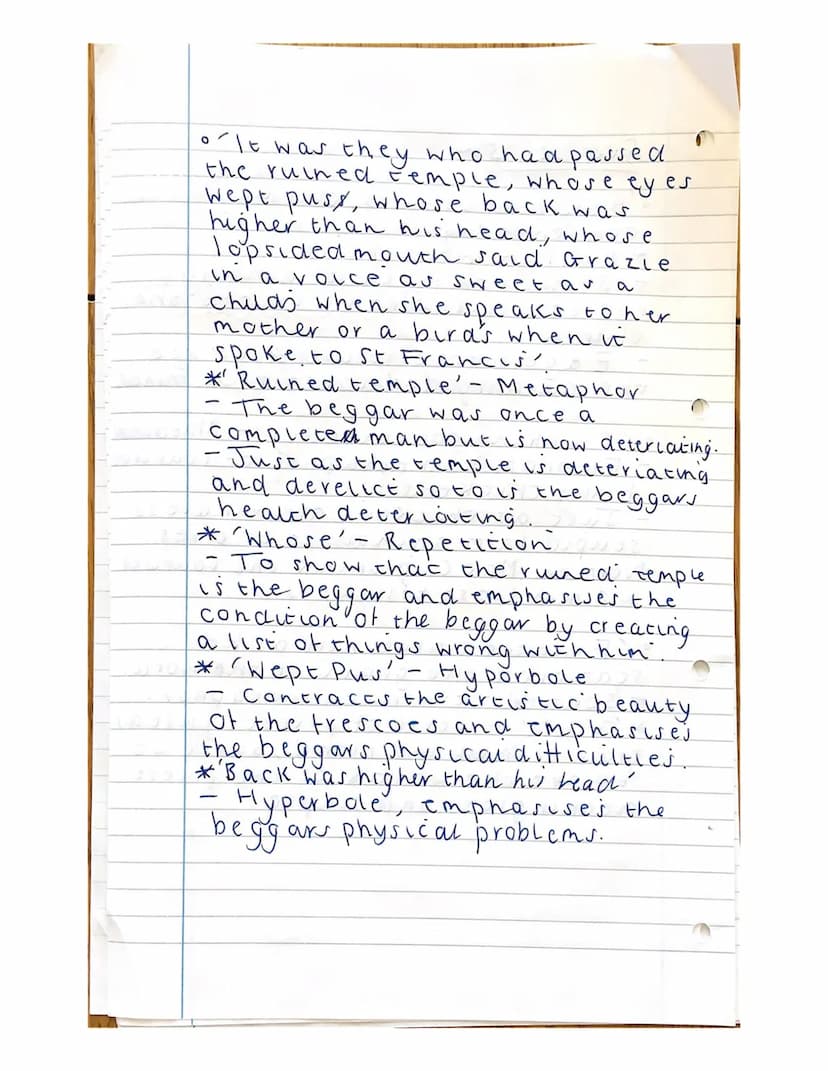 ° 'It was they who had passed
the ruined temple, whose eyes
wept pus, whose back was
higher than his head, whose
lopsided mouth said Grazie
in a voice as sweet as a
child's when she speaks to her
mother or a bird's when it
spoke to St Francis'.
* 'Ruined temple' - Metaphor
- The beggar was once a
completed man but is now deteriating.
- Just as the temple is deteriating
and derelict so to is the beggars
health deteriating.
* 'Whose' - Repetition
- To show that the ruined temple
is the beggar and emphasises the
condition of the beggar by creating
a list of things wrong with him.
* 'Wept Pus' - Hyporbole
- Contracts the artistic beauty
of the frescoes and emphasises
the beggars physical difficulties.
* 'Back was higher than his head'
- Hyperbole, emphasises the
beggars physical problems.